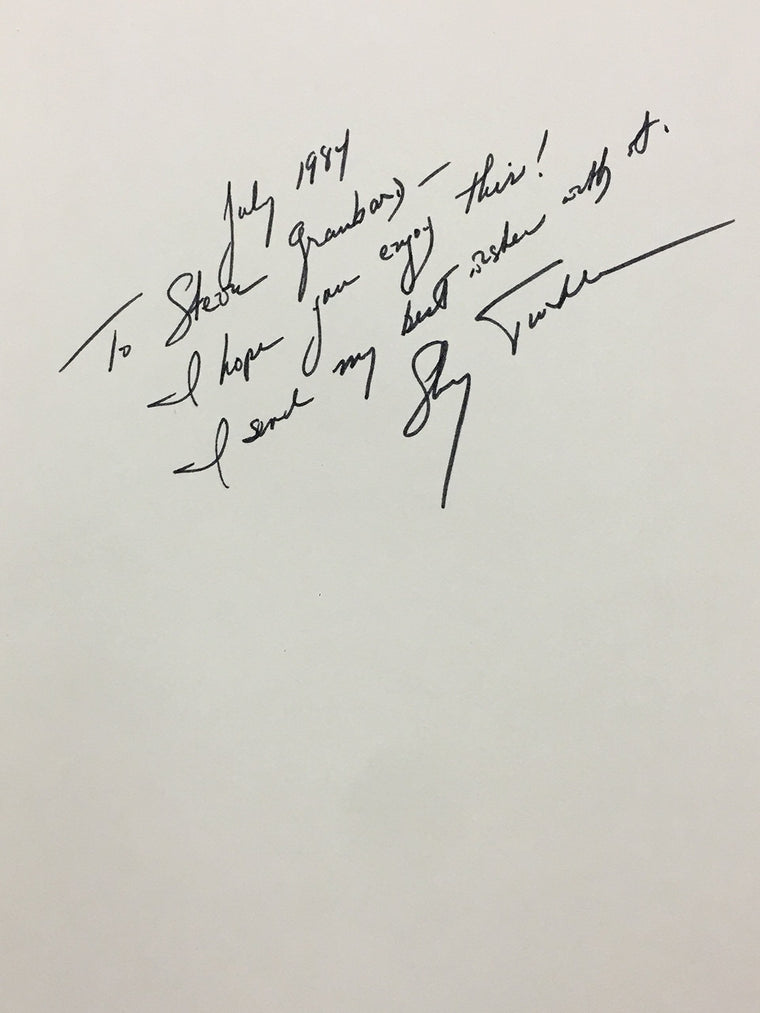 July 1984
To Steve Graubard —
I hope you enjoy this!
I send my best wishes with it.
Sherry Turkle